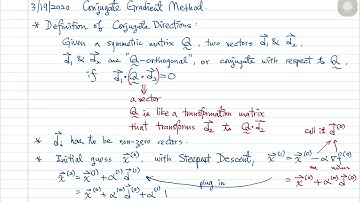 3/19/2020 Conjugate Gradient Method.
* Definition of Conjugate Directions:
Given a symmetric matrix Q, two vectors d⃗₁ & d⃗₂.
d⃗₁ & d⃗₂ are "Q-orthogonal", or conjugate with respect to Q,
if d⃗₁·(Q·d⃗₂)=0
a vector
Q is like a transformation matrix
that transforms d⃗₂ to Q·d⃗₂
* d⃗ᵢ has to be non-zero vectors.
call it d⃗⁽⁰⁾
* Initial guess x⃗⁽⁰⁾, with Steepest Descent, x⃗⁽¹⁾ = x⃗⁽⁰⁾ - α ∇f⁽⁰⁾
x⃗⁽²⁾ = x⃗⁽¹⁾ + α⁽¹⁾ d⃗⁽¹⁾
plug in
= x⃗⁽⁰⁾ + α⁽⁰⁾ d⃗⁽⁰⁾